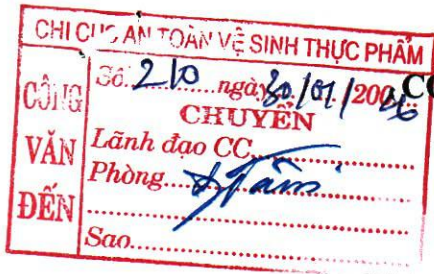 CHI CỤC AN TOÀN VỆ SINH THỰC PHẨM
CÔNG VĂN ĐẾN
Số 210 ngày 30/01/2026
CHUYỂN
Lãnh đạo CC
Phòng
Sao